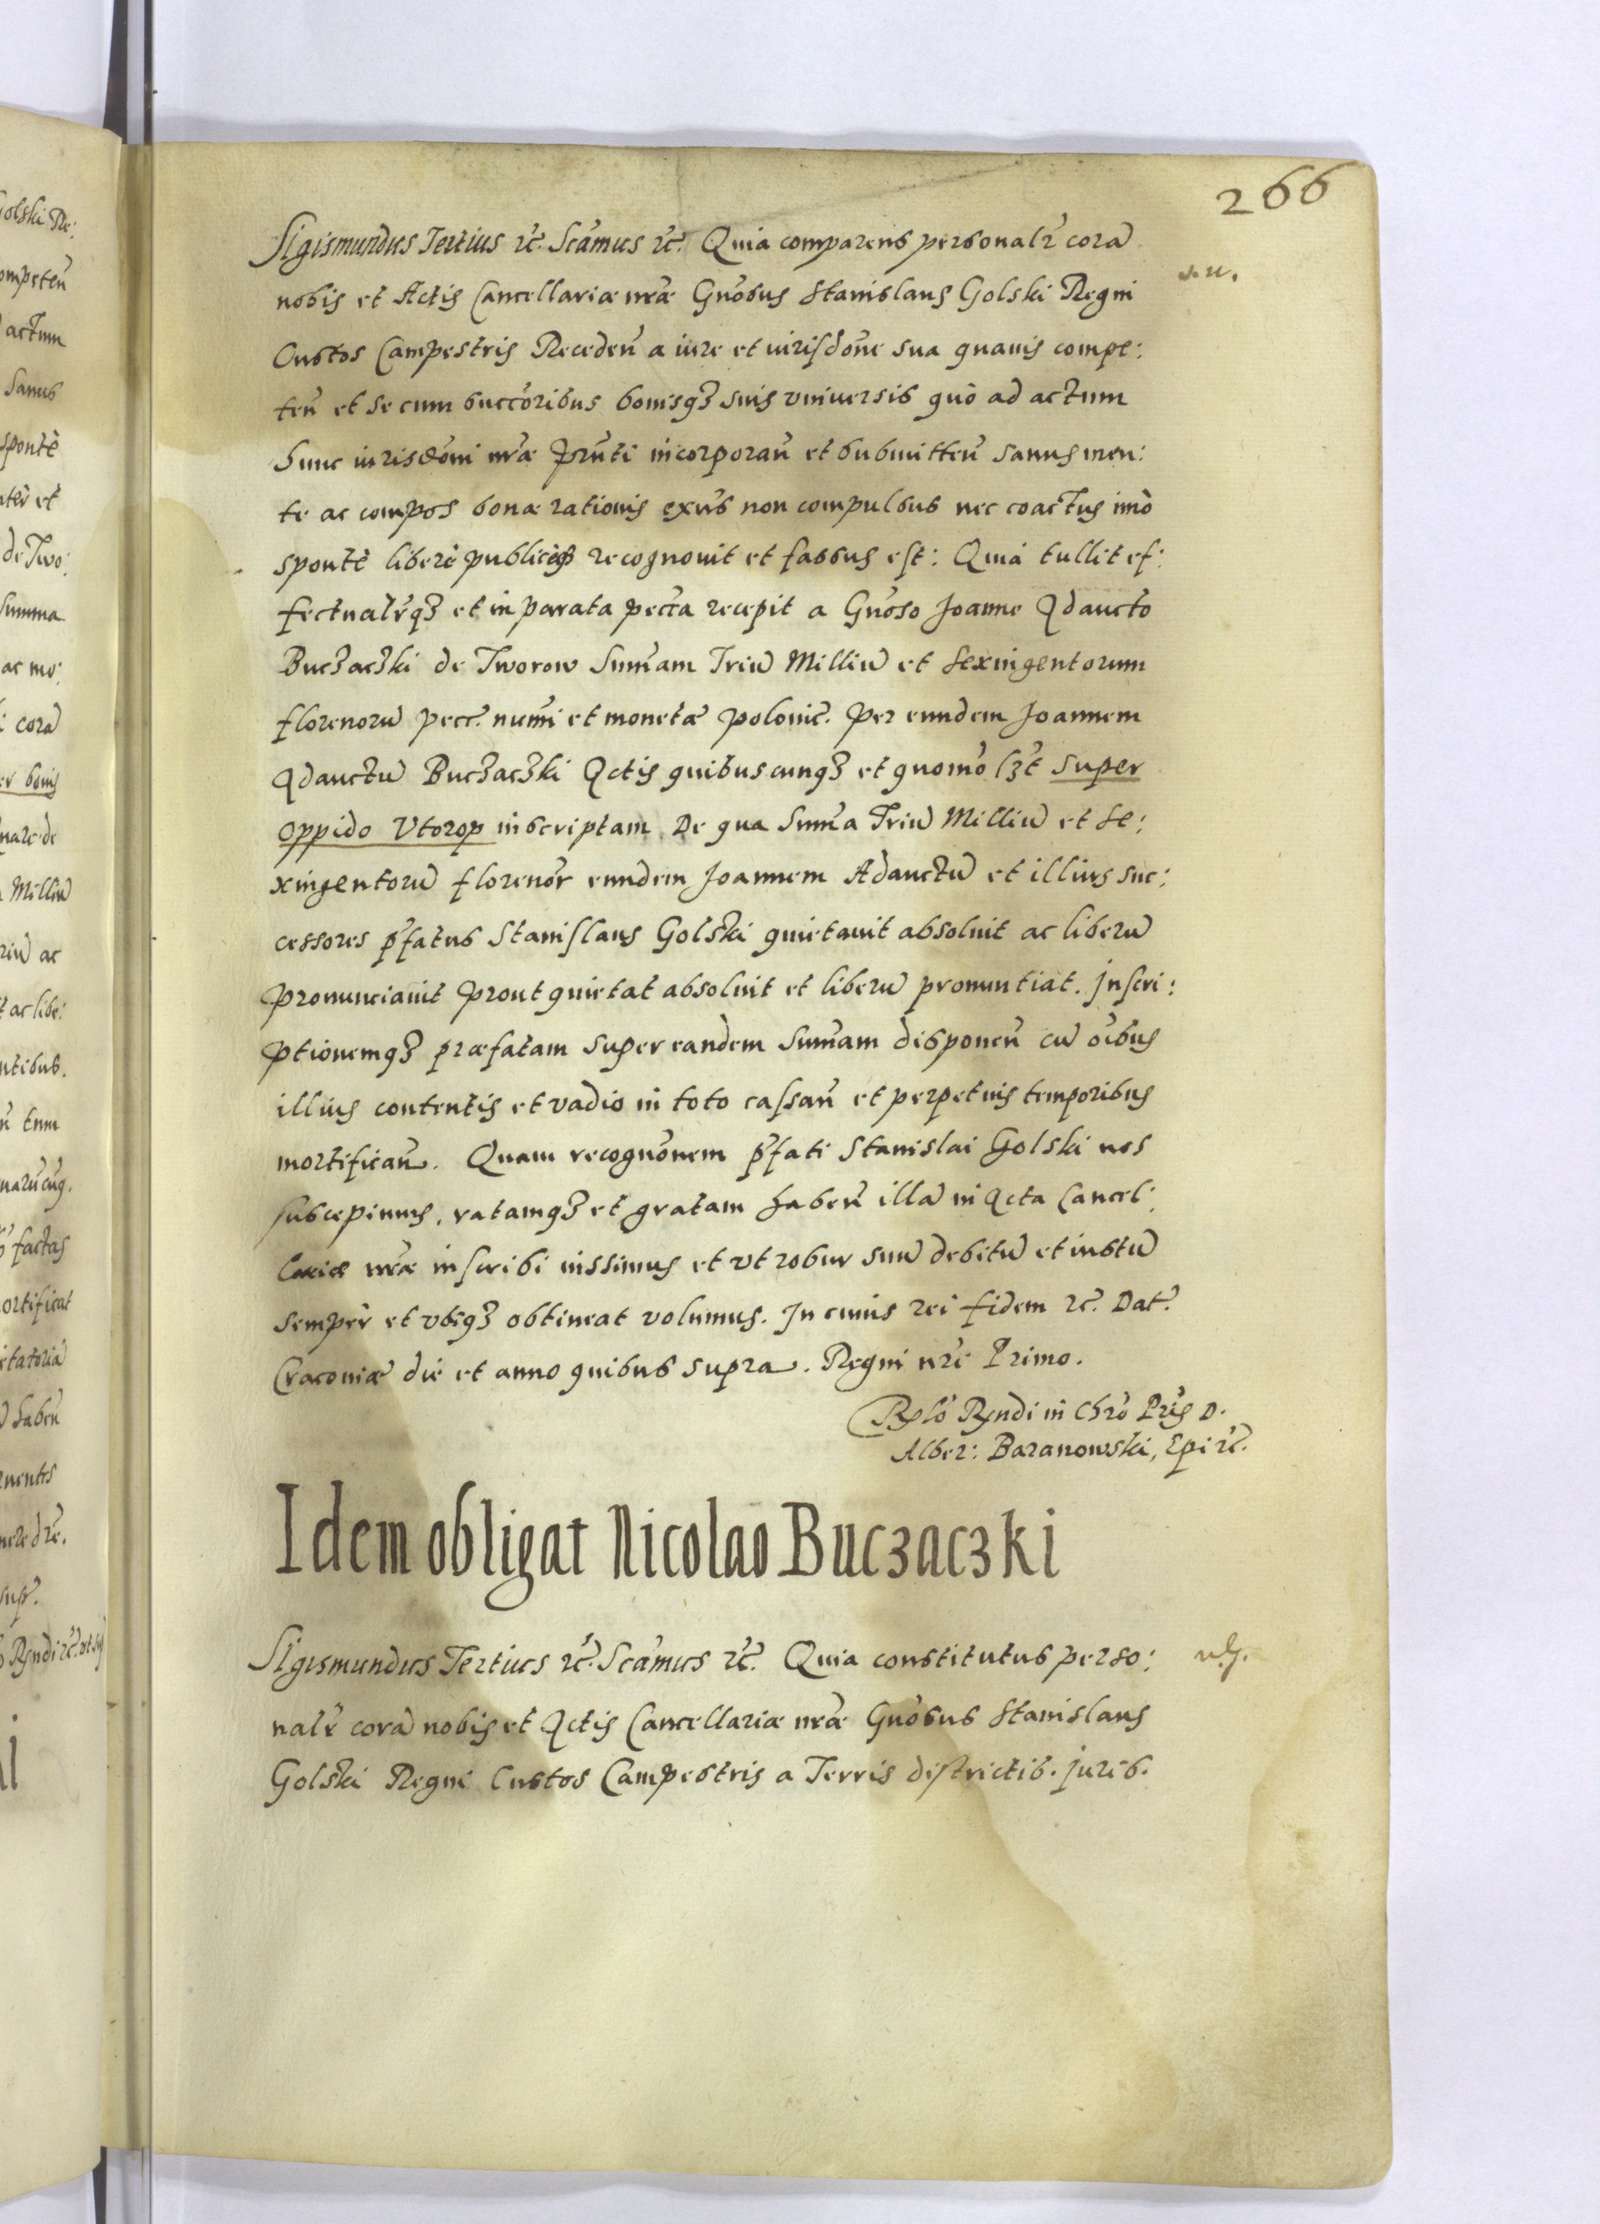 266
Sigismundus Tertius rc̃. Scãmus rc̃. Quia comparens personalr̃ corã
nobis et Actis Cancellariæ nr̃æ Gnõsus Stanislaus Golski Regni
Custos Campestris Recedeñ a iure et iurisdõne sua quauis compe:
teñ et se cum succõribus bonisqꝫ suis vniuersis quò ad actum
hunc iurisdõni nr̃æ prñti incorporañ et submitteñ sanus men:
te ac compos bonæ rationis exñs non compulsus nec coactus imò
spontè liberè publicèqꝫ recognouit et fassus est: Quia tullit ef:
fectualr̃qꝫ et in parata pecc̃a recepit a Gnõso Joanne Adaucto
Buczaczki de Tworow Sum̃am Triũ Milliũ et Sexingentorum
florenorũ pecc̃. num̃i et monetæ polonic̃. per eundem Joannem
Adauctũ Buczaczki Actis quibuscunqꝫ et quomõ lꝫt super
oppido Vtorop inscriptam. De qua Sum̃a Triũ Milliũ et Se:
xingentorũ florenor̃ eundem Joannem Adauctũ et illius suc:
cessores p̃fatus Stanislaus Golski quietauit absoluit ac liberũ
pronunciauit prout quietat absoluit et liberũ pronuntiat. Inscri:
ptionemqꝫ præfatam super eandem Sum̃am disponeñ cũ oĩbus
illius contentis et vadio in toto cassañ et perpetuis temporibus
mortificañ. Quam recognõnem p̃fati Stanislai Golski nos
suscepimus, ratamqꝫ et gratam habeñ illã in Acta Cancel:
lariæ nr̃æ inscribi iussimus et vt robur suũ debitũ et iustũ
semper et vbiqꝫ obtineat volumus. In cuius rei fidem rc̃. Dat̃.
Cracoviæ die et anno quibus supra. Regni nr̃e Primo.
Rlõ Rndi in Chrõ Pr̃is D.
Alber: Baranowski, Epi rc̃.
Idem obligat Nicolao Buczaczki
Sigismundus Tertius rc̃. Scãmus rc̃. Quia constitutus perso:
nalr̃ corã nobis et Actis Cancellariæ nr̃æ Gnõsus Stanislaus
Golski Regni Custos Campestris a Terris districtib. jurib.